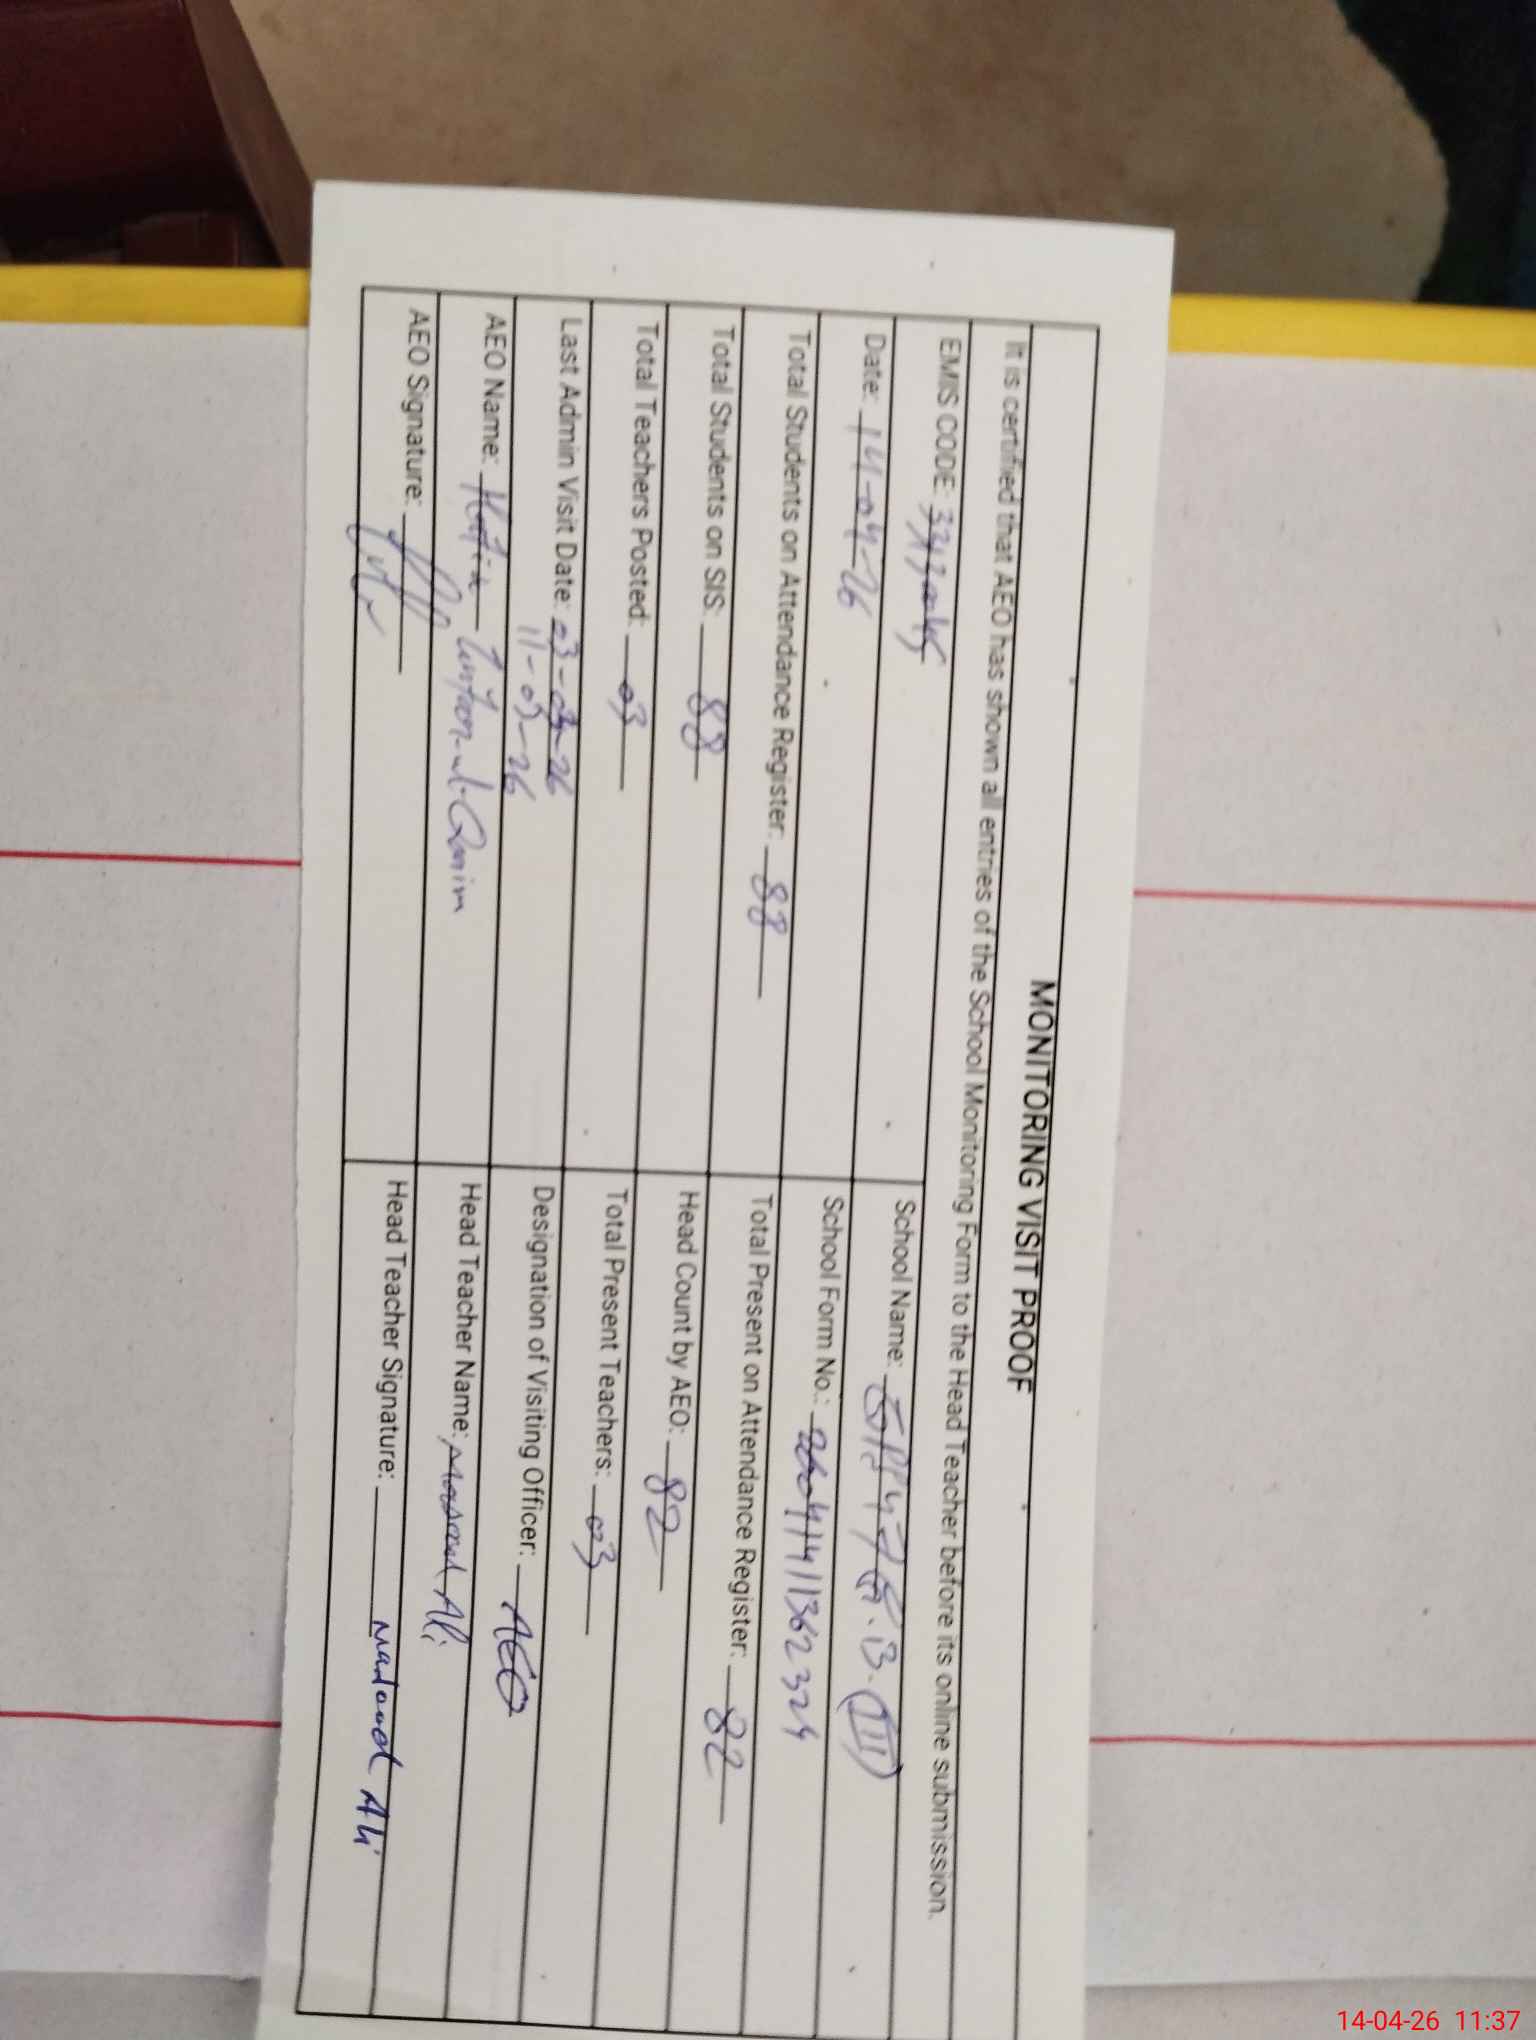 MONITORING VISIT PROOF
It is certified that AEO has shown all entries of the School Monitoring Form to the Head Teacher before its online submission.
EMIS CODE:
School Name:
Date: 14-04-26
School Form No.:
Total Students on Attendance Register: 88
Total Present on Attendance Register: 82
Total Students on SIS: 88
Head Count by AEO: 82
Total Teachers Posted: 03
Total Present Teachers: 03
Last Admin Visit Date: 03-03-26
11-03-26
Designation of Visiting Officer: AEO
AEO Name:
Head Teacher Name: Ali
AEO Signature:
Head Teacher Signature: Ali
14-04-26 11:37